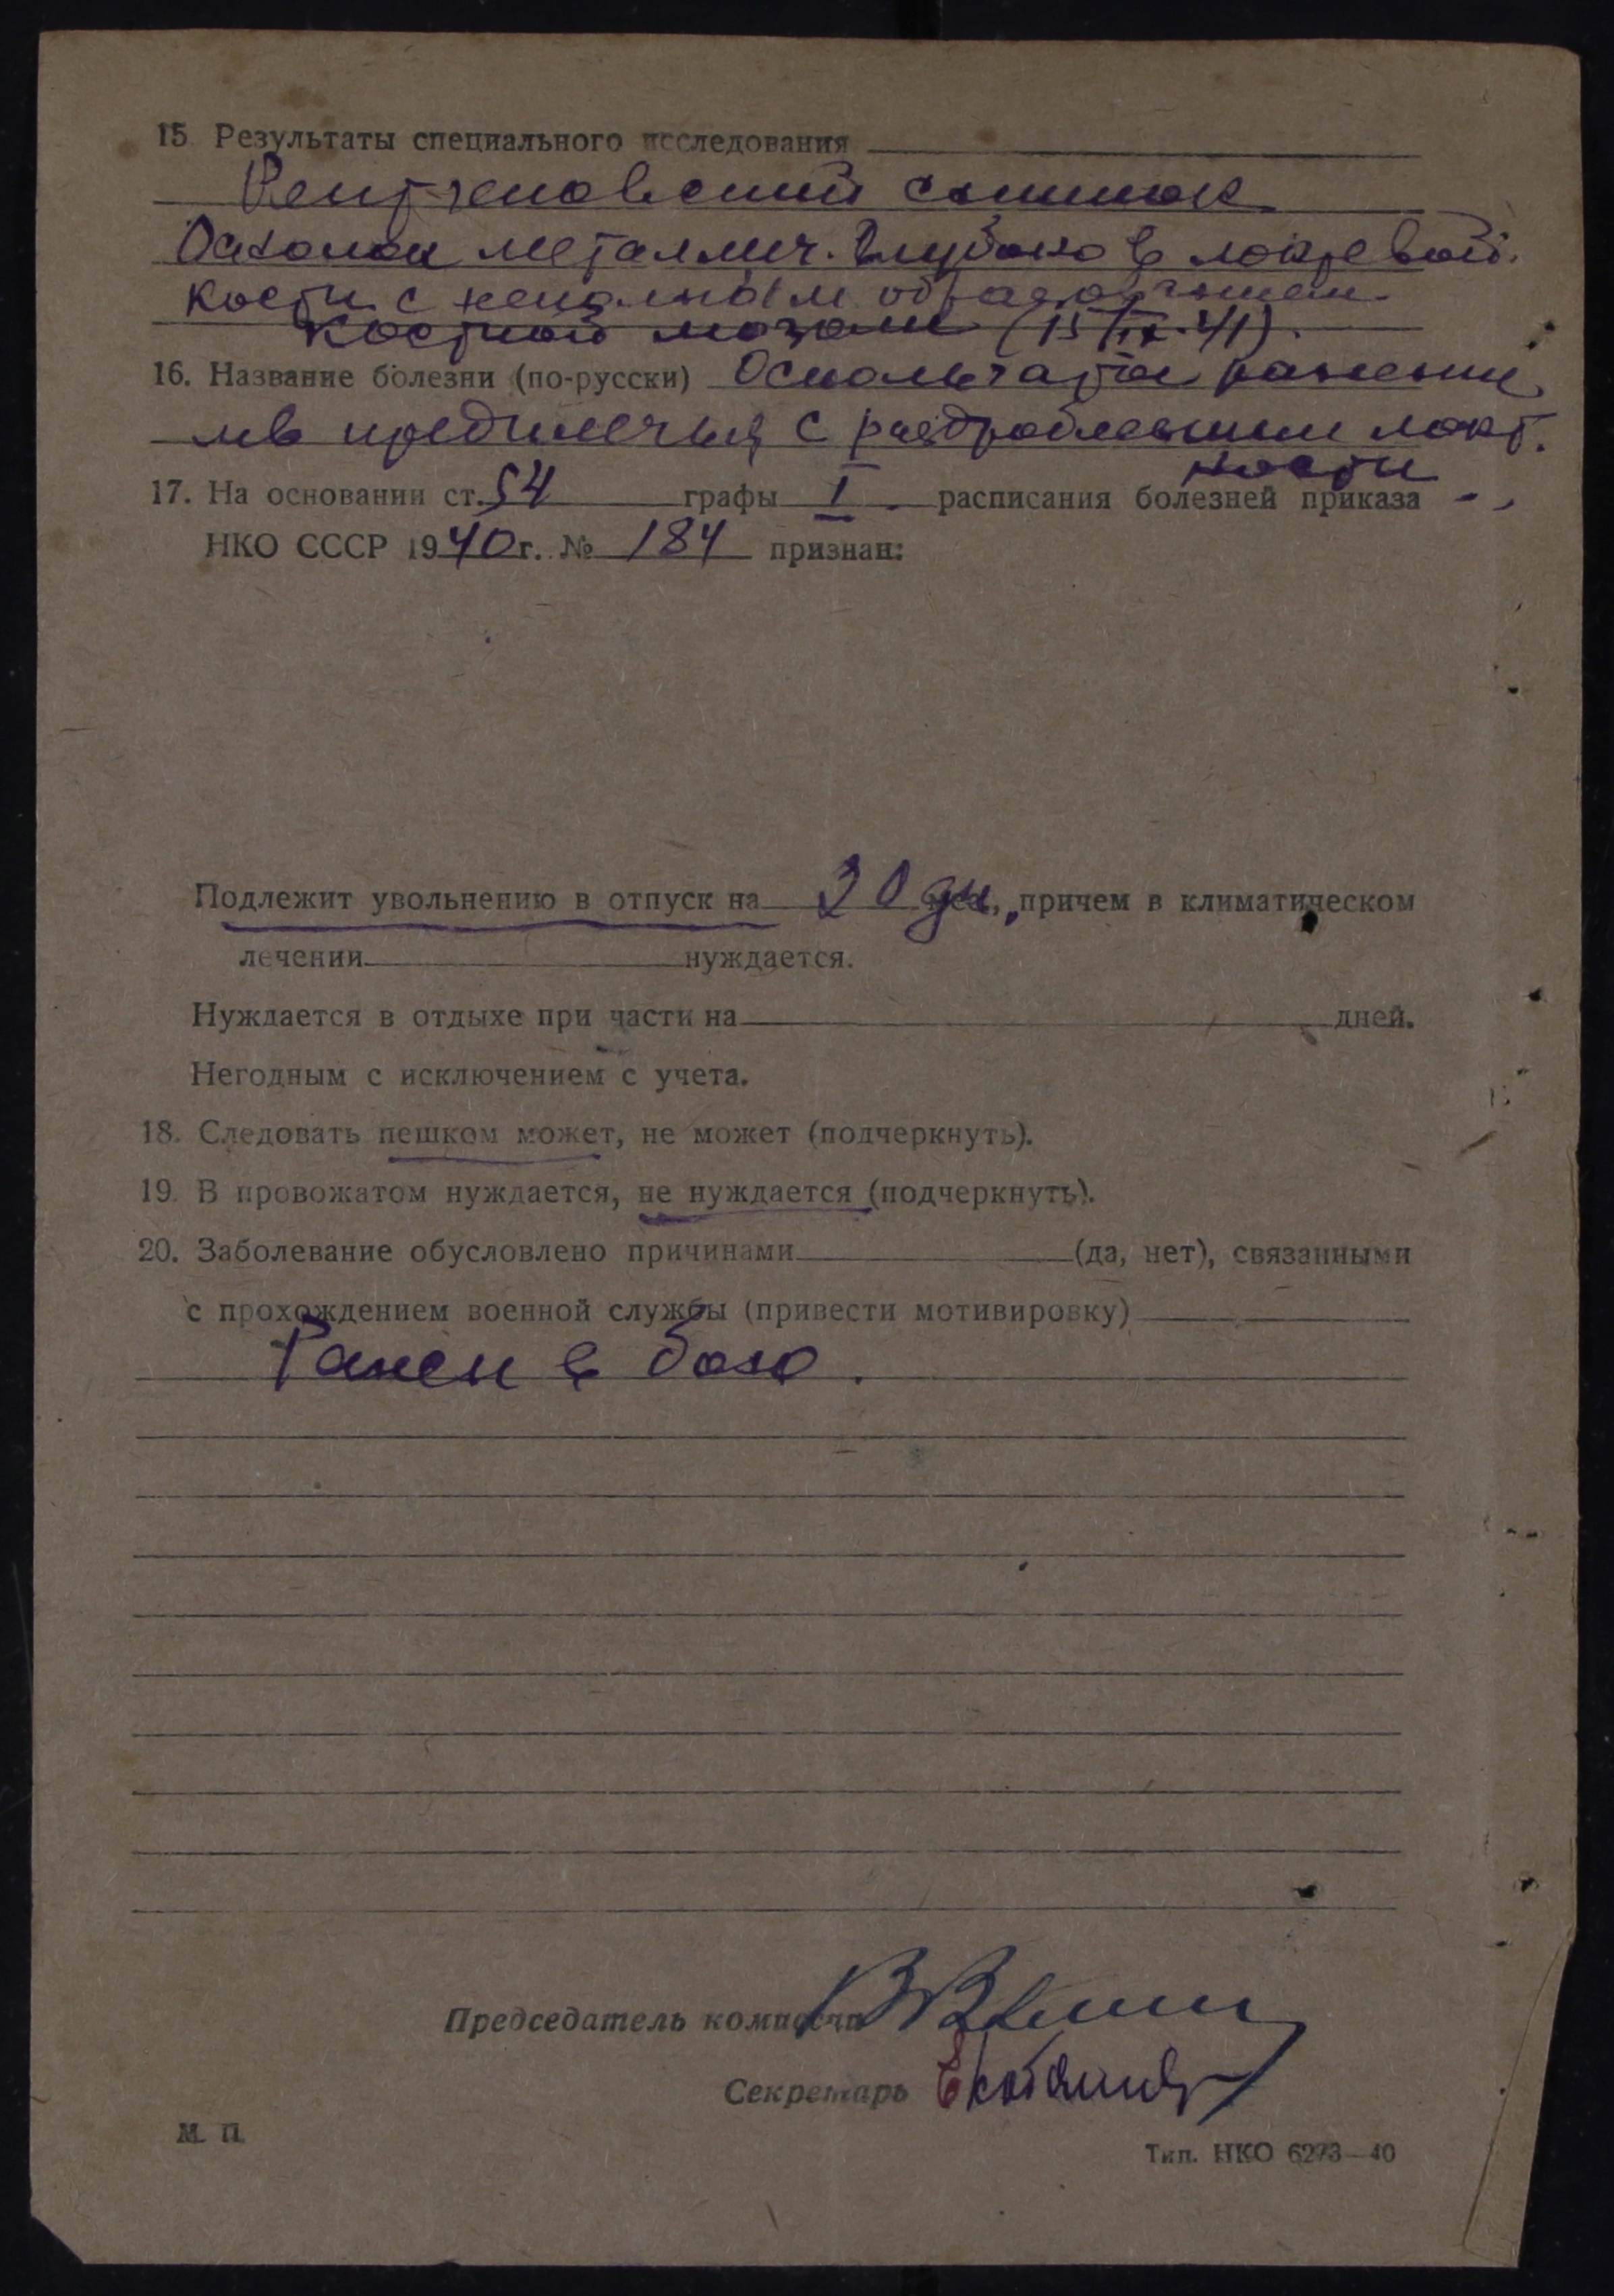 15. Результаты специального исследования
Рентгеновский снимок
Осколок металлич. Глубоко в локтевой
кости с неполным образованием
костной мозоли (15/IX.41).
16. Название болезни (по-русски) Оскольчатое ранение
лев предплечья с раздроблением локт.
кости
17. На основании ст. 54 графы I расписания болезней приказа
НКО СССР 1940 г. № 184 признан:
Подлежит увольнению в отпуск на 30 дн., причем в климатическом
лечении нуждается.
Нуждается в отдыхе при части на дней.
Негодным с исключением с учета.
18. Следовать пешком может, не может (подчеркнуть).
19. В провожатом нуждается, не нуждается (подчеркнуть).
20. Заболевание обусловлено причинами (да, нет), связанными
с прохождением военной службы (привести мотивировку)
Ранен в бою.
Председатель комиссии
Секретарь
М. П.
Тип. НКО 6273—40